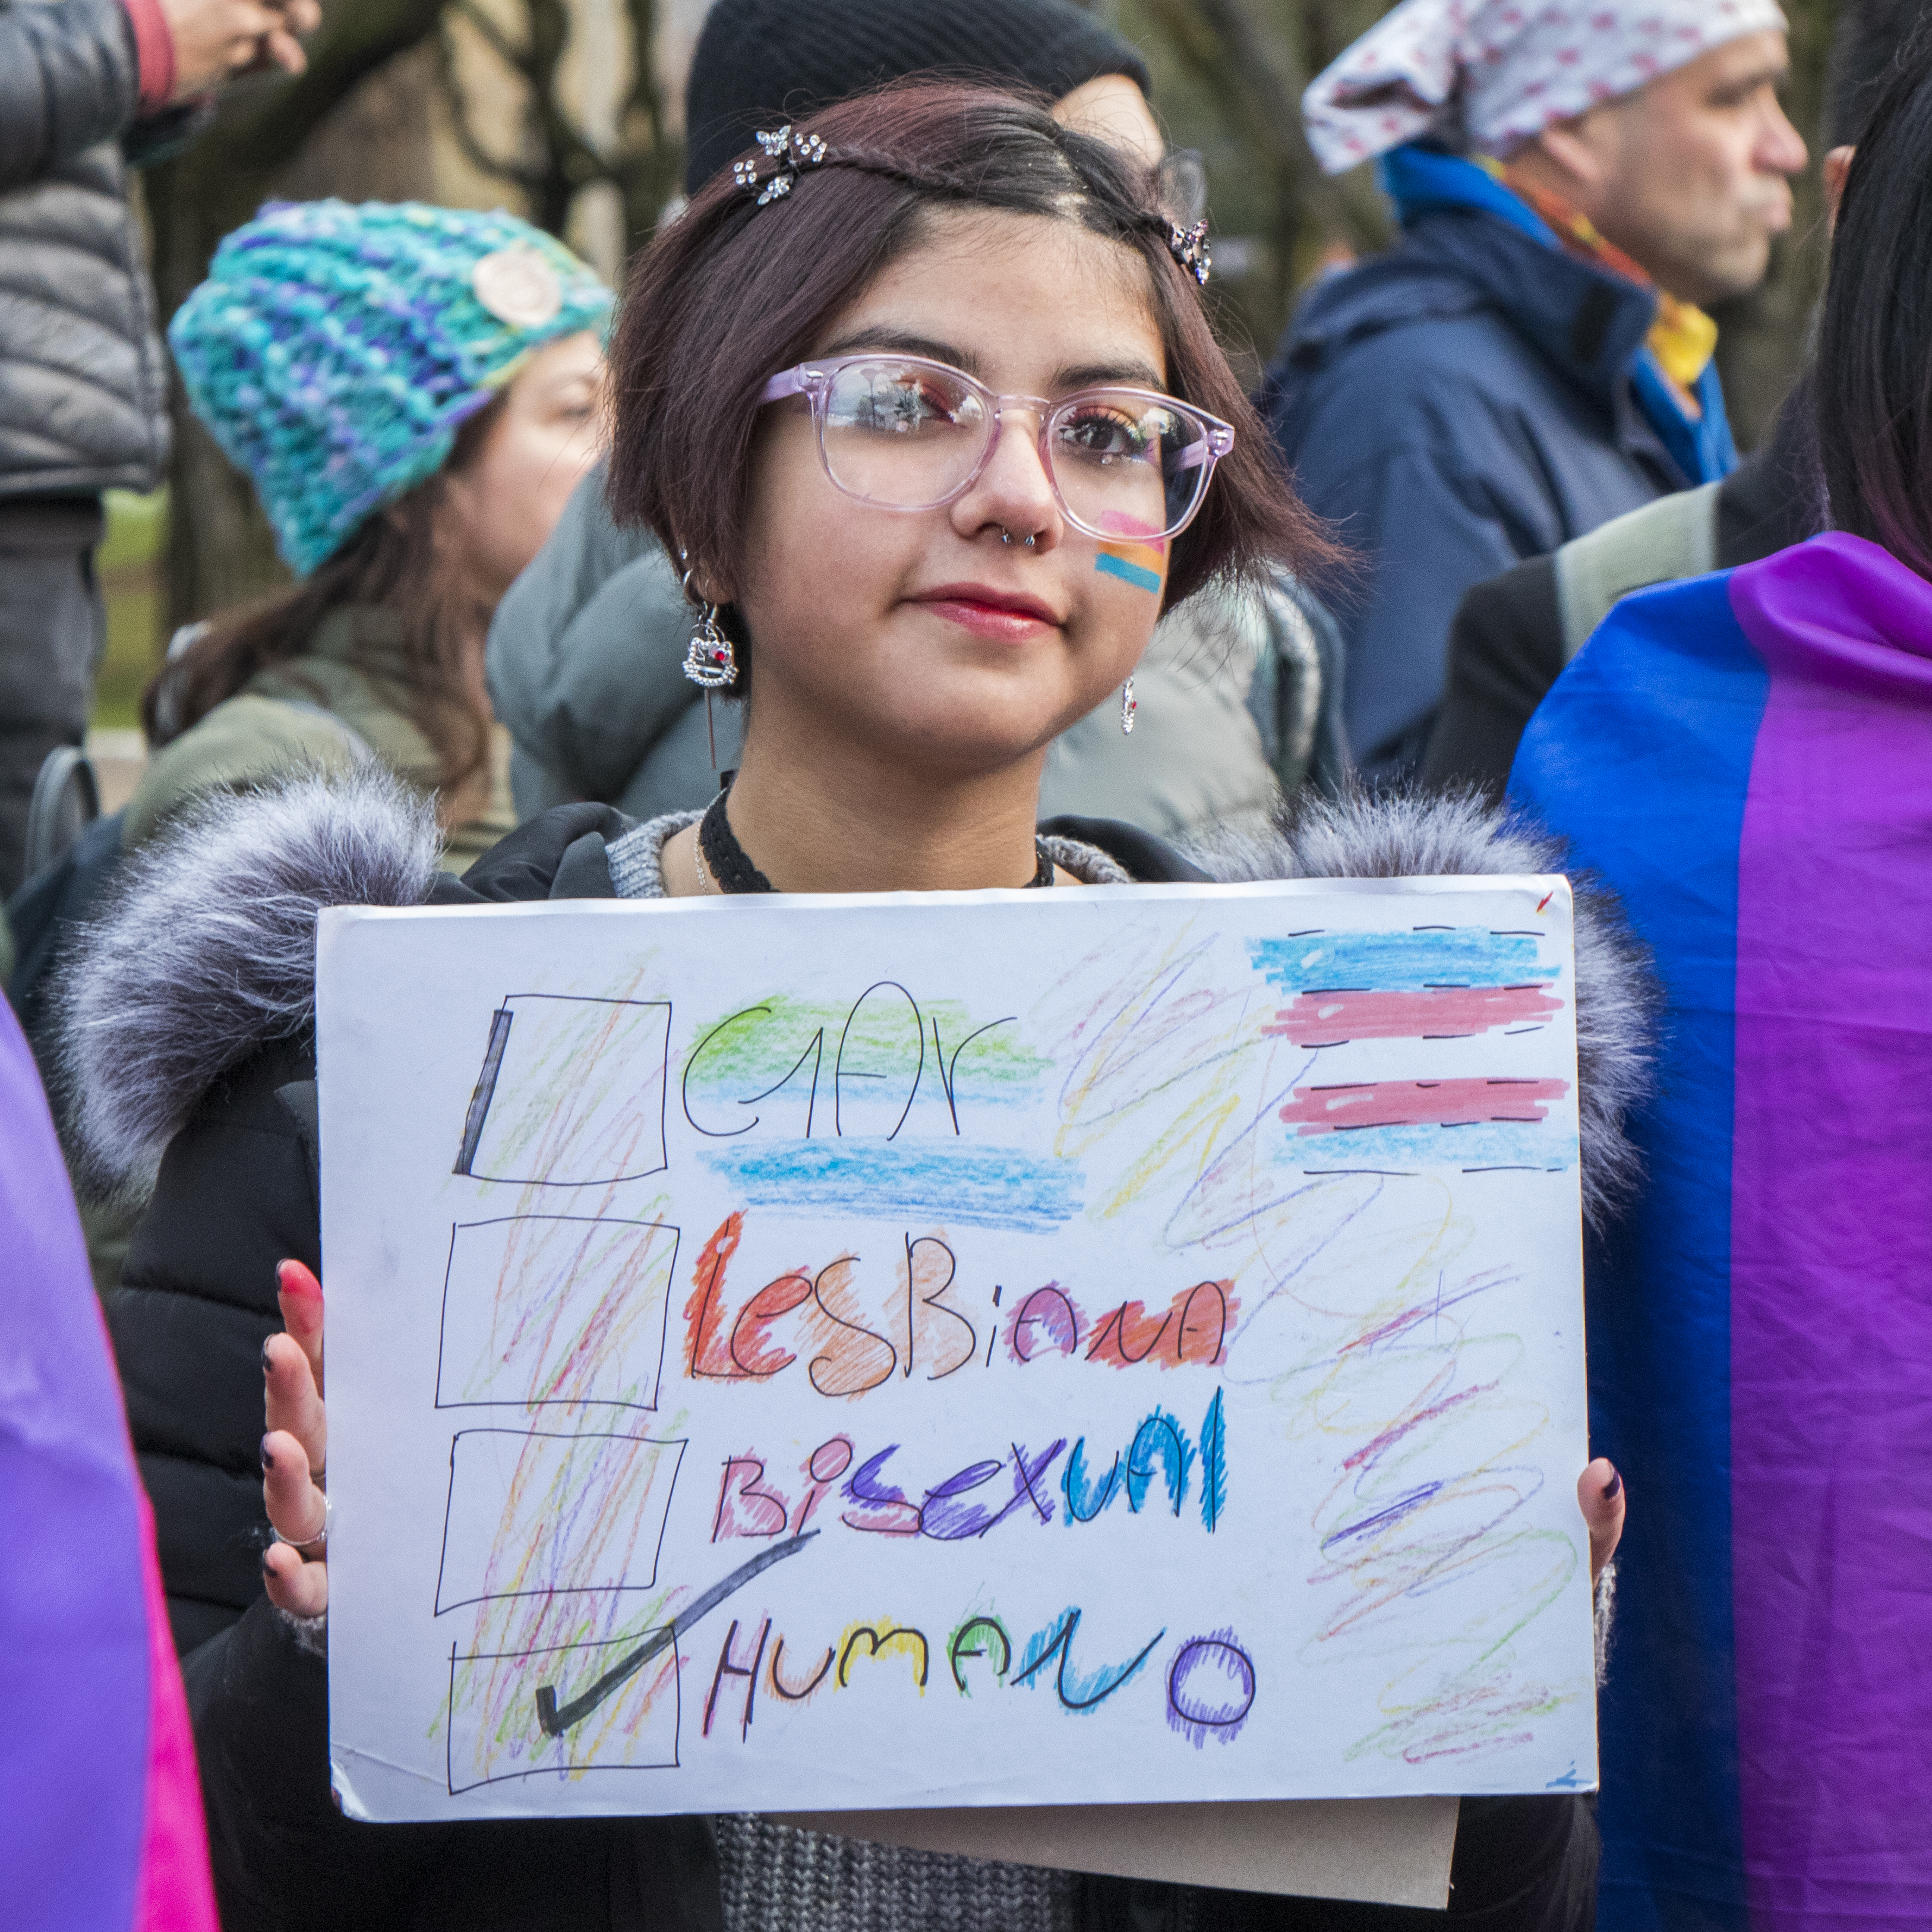 GAY
LesBiANA
BisexuAl
HUMANO